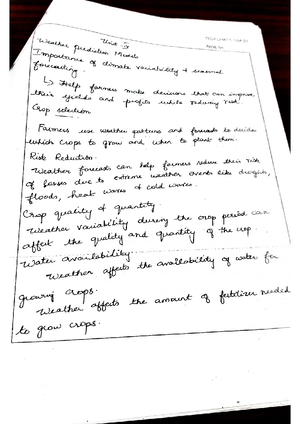 Unit - IV
Weather prediction Models
Importance of climate variability & seasonal
forecasting.
↳ Help farmers make decisions that can improve
their yields and profits while reducing risk.
Crop selection
Farmers use weather patterns and forecasts to decide
which crops to grow and when to plant them.
Risk Reduction:
Weather forecasts can help farmers reduce their risk
of losses due to extreme weather events like droughts,
floods, heat waves & cold waves.
Crop quality & quantity
Weather variability during the crop period can
affect the quality and quantity of the crop.
Water availability:
Weather affects the availability of water for
growing crops.
Weather affects the amount of fertilizer needed
to grow crops.